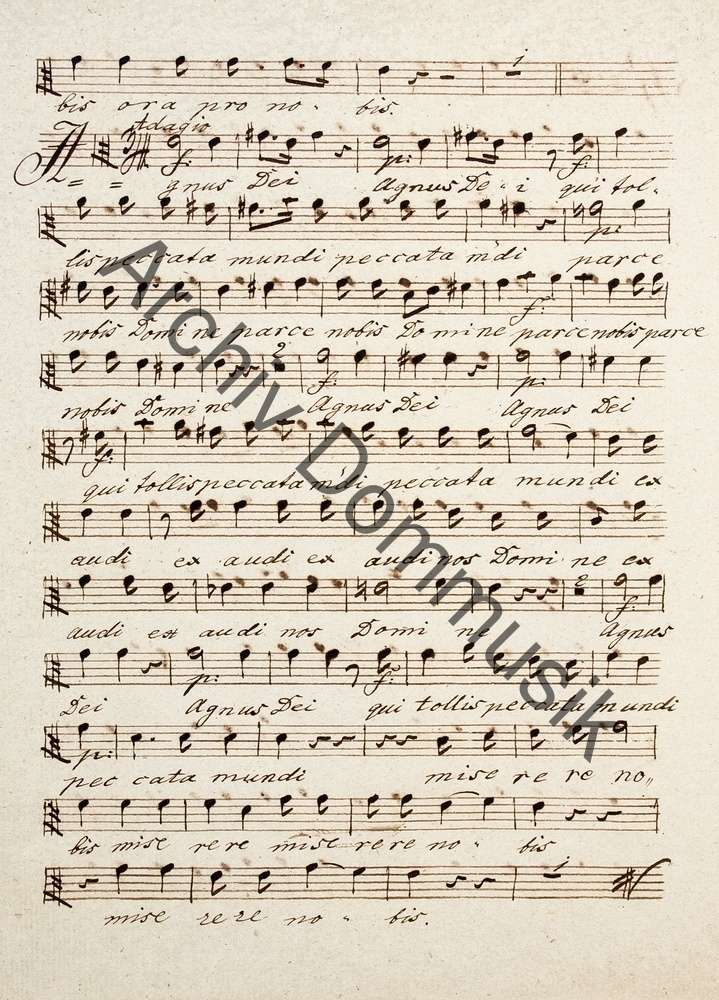 1
bis ora pro no - bis.
Adagio
f: p: f:
A = = gnus Dei Agnus De - i qui tol-
p:
lis peccata mundi peccata mdi parce
f:
nobis Domine parce nobis Domine parce nobis parce
2
f: p:
nobis Domine Agnus Dei Agnus Dei
f:
qui tollis peccata mdi peccata mundi ex
audi ex audi ex audi nos Domine ex
2
f:
audi ex audi nos Domi ne Agnus
p: f:
Dei Agnus Dei qui tollis peccata mundi
p:
pec cata mundi mise re re no,,
bis mise rere mise rere no - bis
1
mise rere no - bis.
Archiv Dommusik